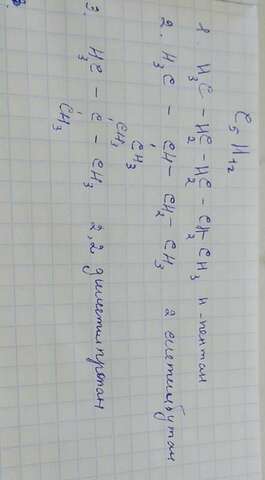 C5H12
1. H3C - H2C - H2C - CH2 - CH3 н-пентан
2. H3C - CH - CH2 - CH3 2 метилбутан
CH3
CH3
3. H3C - C - CH3 2,2 диметилпропан
CH3